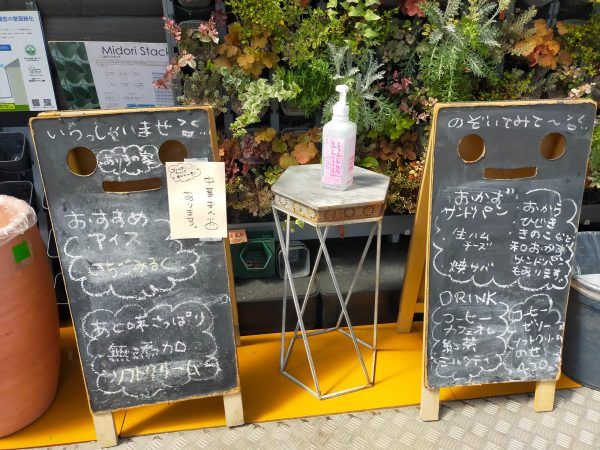 Midori Stack
いらっしゃいませ
ありの実
おすすめ
アイス
いちごみるく
あと味さっぱり
無添加
ソフトクリーム
中華まん
あります
のぞいてみて～
おかず
サンドパン
生ハム
チーズ
焼サバ
おから
ひじき
きのこなど
和おかず
サンドパン
もあります
DRINK
コーヒー
カフェオレ
紅茶
ミルクティ
コーヒー
ゼリー
ソフトクリーム
のせ